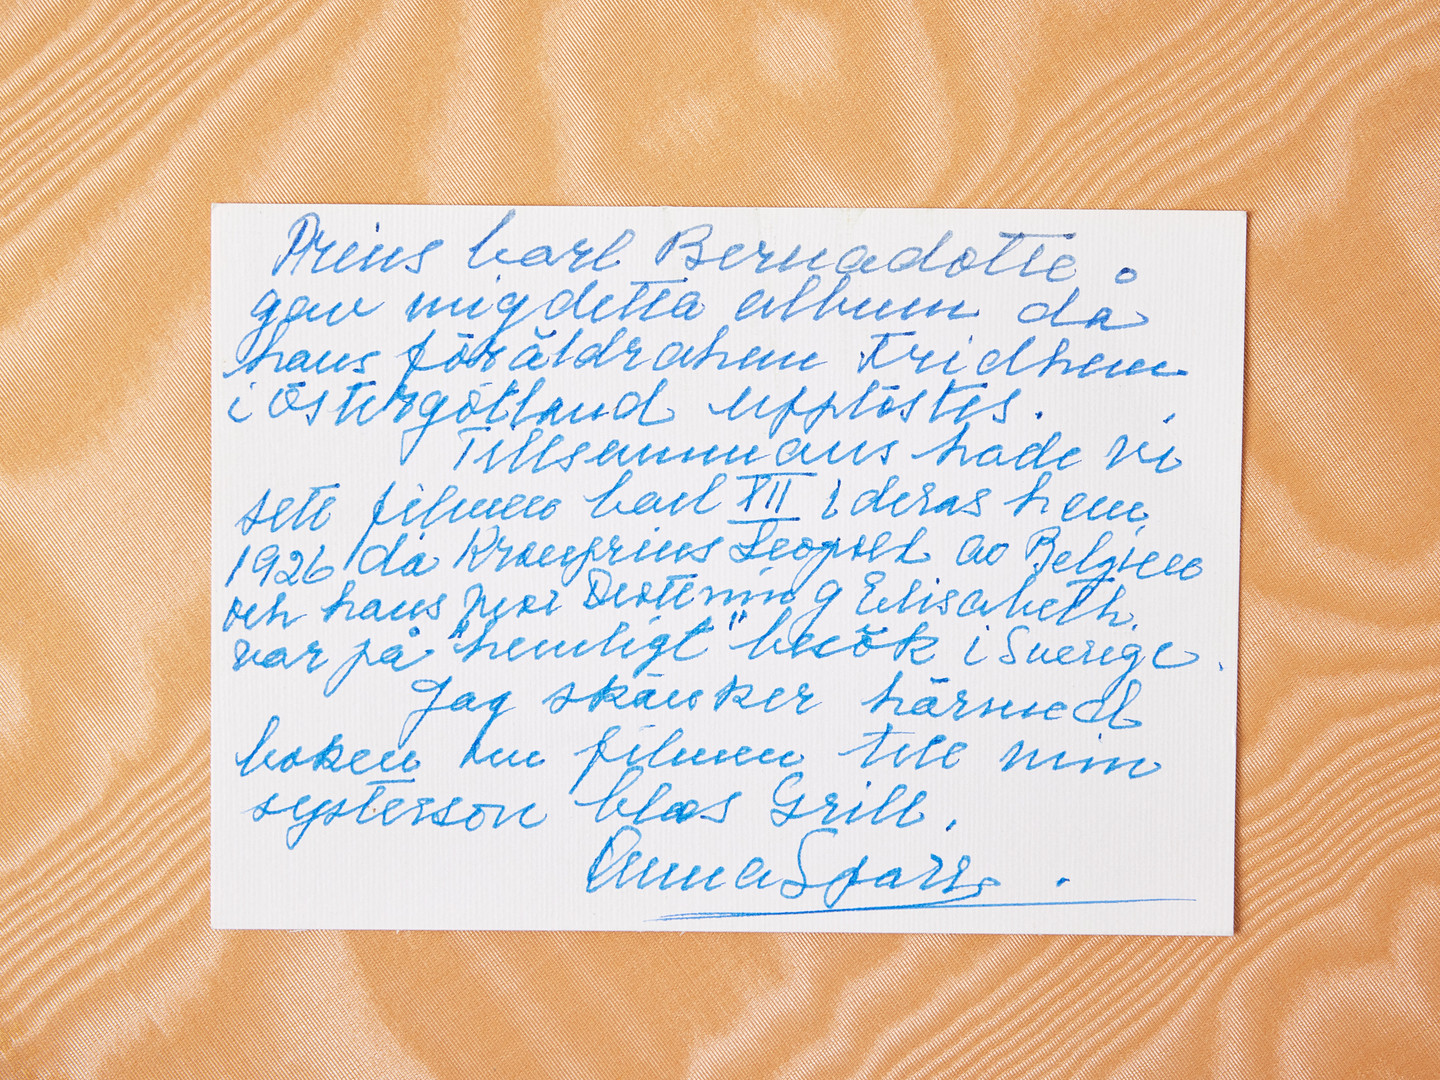 Prins Carl Bernadotte.
gav mig detta album då
hans föräldrahem Fridhem
i Östergötland upplöstes.
Tillsammans hade vi
sett filmen Carl XII i deras hem,
1926 då Kronprins Leopold av Belgien
och hans mor Drottning Elisabeth,
var på "hemligt" besök i Sverige.
Jag skänker härmed
boken om filmen till min
systerson Claes Grill.
Anna Sparre.